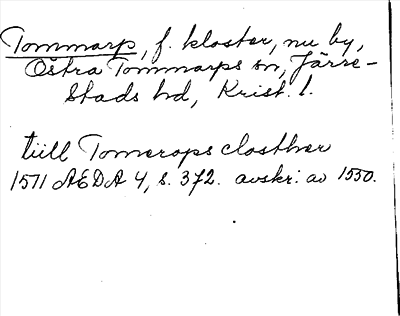 Tommarp, f. kloster, nu by,
Östra Tommarps sn, Järre-
stads hd, Krist. l.
tiill Tomerops closther
1571 ÆDA 4, s. 372. avskr: av 1550.